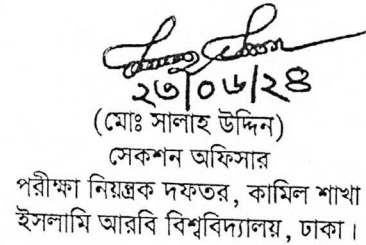 ২৩/০৬/২৪
(মোঃ সালাহ উদ্দিন)
সেকশন অফিসার
পরীক্ষা নিয়ন্ত্রক দফতর, কামিল শাখা
ইসলামি আরবি বিশ্ববিদ্যালয়, ঢাকা।